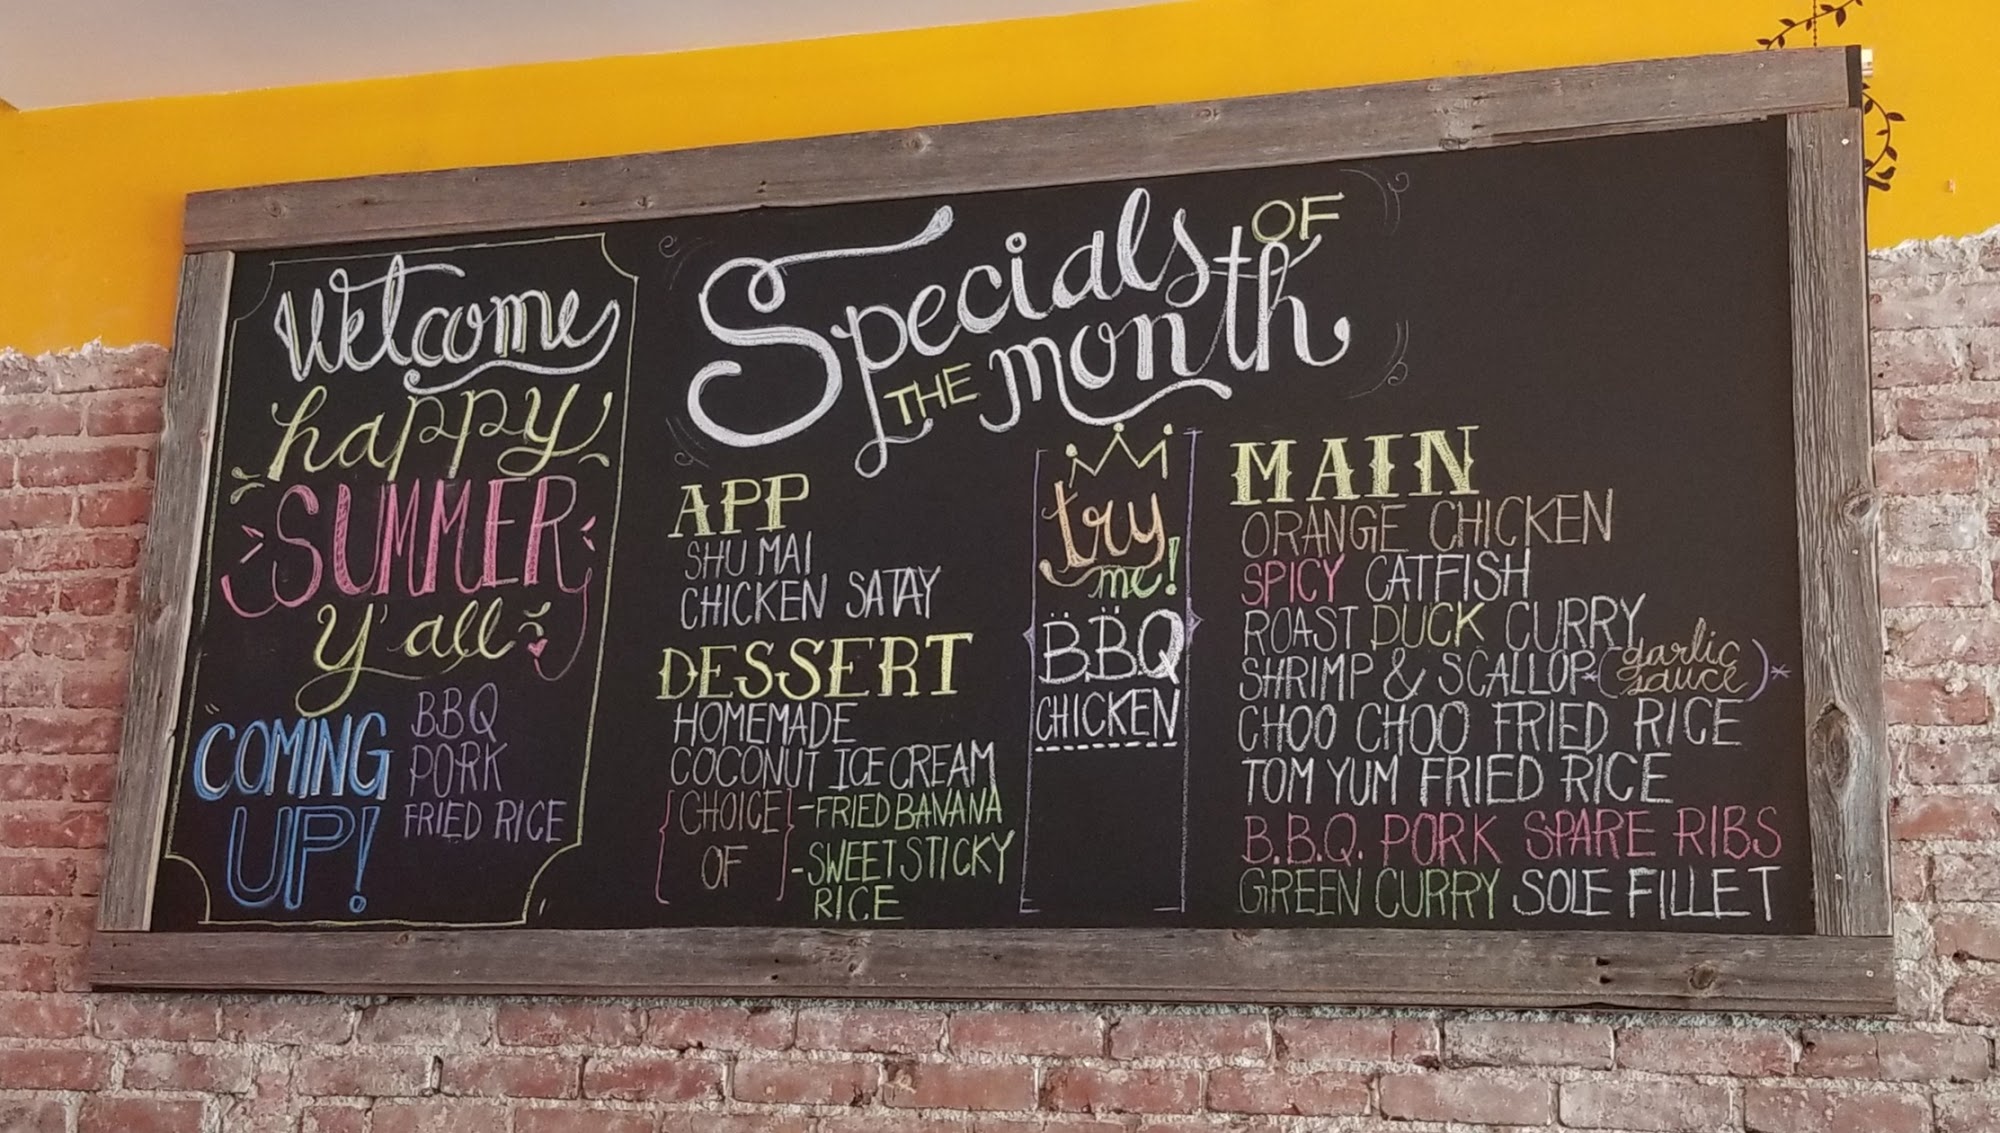 Welcome
happy
SUMMER
y'all
COMING
UP!
BBQ
PORK
FRIED RICE
Specials OF
THE month
APP
SHU MAI
CHICKEN SATAY
DESSERT
HOMEMADE
COCONUT ICE CREAM
{CHOICE OF} -FRIED BANANA
-SWEET STICKY
RICE
try
me!
B.B.Q
CHICKEN
MAIN
ORANGE CHICKEN
SPICY CATFISH
ROAST DUCK CURRY
SHRIMP & SCALLOP *(garlic sauce)*
CHOO CHOO FRIED RICE
TOM YUM FRIED RICE
B.B.Q. PORK SPARE RIBS
GREEN CURRY SOLE FILLET